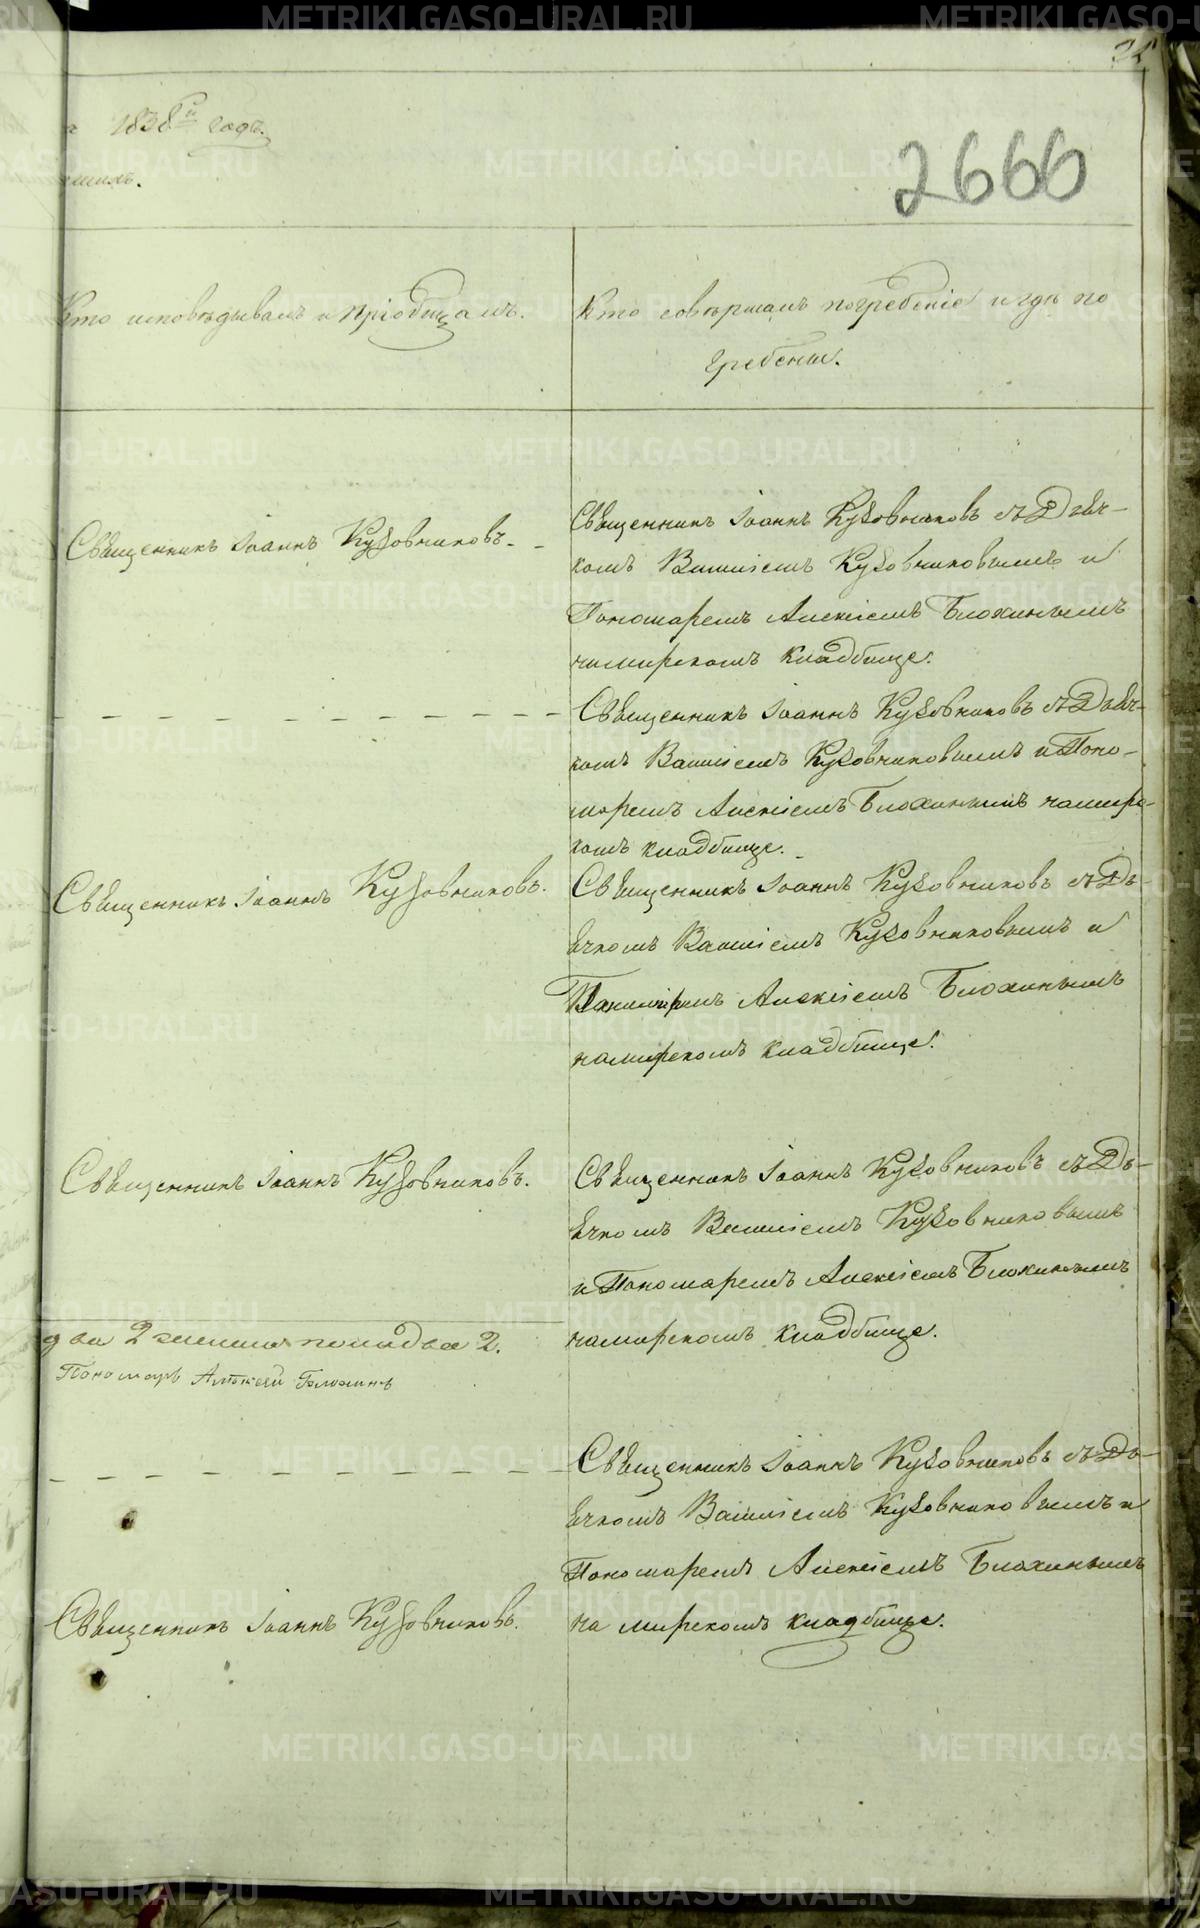 1838го годъ.
2666
Кто исповѣдывалъ и пріобщалъ.
Кто совершалъ погребеніе и гдѣ по
гребены.
Священникъ Іоаннъ Кузовниковъ.
Священникъ Іоаннъ Кузовниковъ съ Дьяч-
комъ Василіемъ Кузовниковымъ и
Пономаремъ Алексіемъ Блохинымъ
на мирскомъ кладбище.
Священникъ Іоаннъ Кузовниковъ съ Дьяч-
комъ Василіемъ Кузовниковымъ и Поно-
маремъ Алексіемъ Блохинымъ на мирс-
комъ кладбище.
Священникъ Іоаннъ Кузовниковъ.
Священникъ Іоаннъ Кузовниковъ съ Дь-
ячкомъ Василіемъ Кузовниковымъ и
Пономаремъ Алексіемъ Блохинымъ
на мирскомъ кладбище.
Священникъ Іоаннъ Кузовниковъ.
Священникъ Іоаннъ Кузовниковъ съ Дь-
ячкомъ Василіемъ Кузовниковымъ
и Пономаремъ Алексіемъ Блохинымъ
на мирскомъ кладбище.
два 2 женска пола два 2.
Пономарь Алексей Блохинъ
Священникъ Іоаннъ Кузовниковъ съ Дь-
ячкомъ Василіемъ Кузовниковымъ и
Пономаремъ Алексіемъ Блохинымъ
на мирскомъ кладбище.
Священникъ Іоаннъ Кузовниковъ.
METRIKI.GASO-URAL.RU